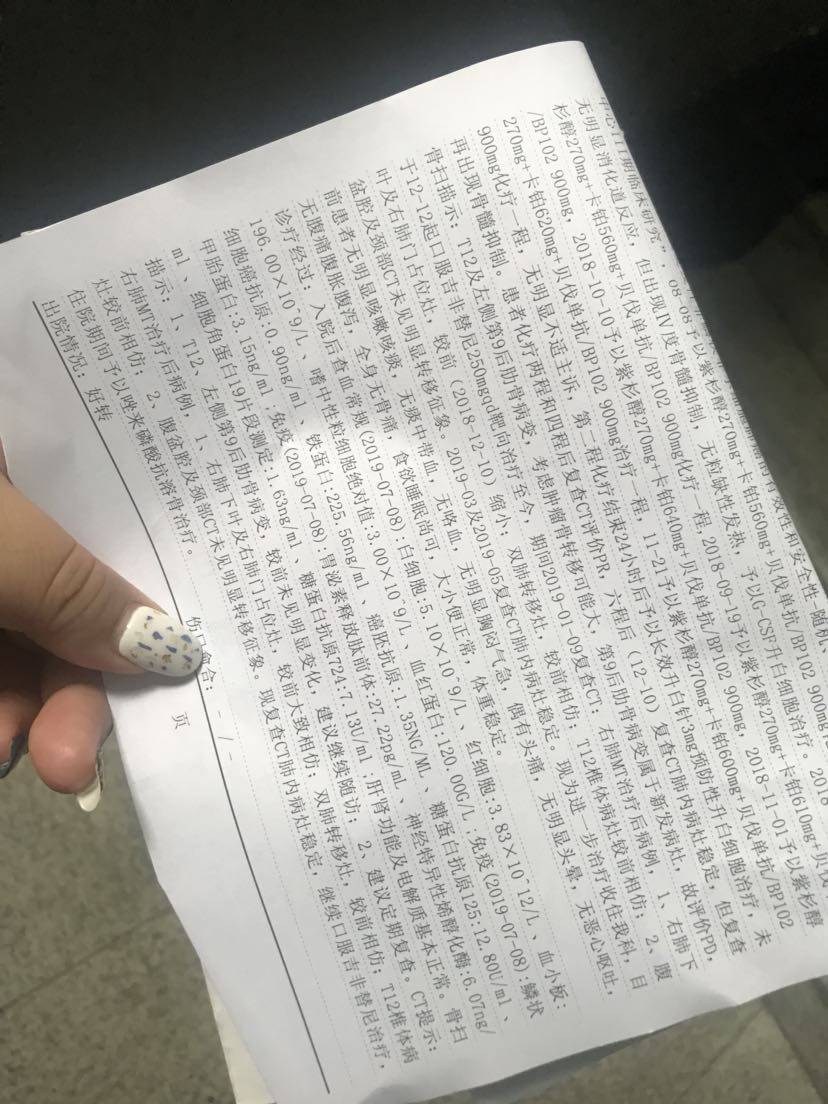 中心III期临床研究,, 08-08予以紫杉醇270mg+卡铂560mg+贝伐单抗/BP102 900mg
无明显消化道反应，但出现IV度骨髓抑制，无粒缺性发热，予以G-CSF升白细胞治疗。2018
杉醇270mg+卡铂560mg+贝伐单抗/BP102 900mg化疗一程，2018-09-19予以紫杉醇270mg+卡铂610mg+贝伐
/BP102 900mg， 2018-10-10予以紫杉醇270mg+卡铂640mg+贝伐单抗/BP102 900mg，2018-11-01予以紫杉醇
270mg+卡铂620mg+贝伐单抗/BP102 900mg治疗一程，11-21予以紫杉醇270mg+卡铂600mg+贝伐单抗/BP102
900mg化疗一程，无明显不适主诉，第二程化疗结束24小时后予以长效升白针3mg预防性升白细胞治疗，未
再出现骨髓抑制。患者化疗两程和四程后复查CT评价PR，六程后（12-10）复查CT肺内病灶稳定，但复查
骨扫描示：T12及左侧第9后肋骨病变，考虑肿瘤骨转移可能大，第9后肋骨病变属于新发病灶，故评价PD，
于12-12起口服吉非替尼250mgqd靶向治疗至今，期间2019-01-09复查CT：右肺MT治疗后病例， 1、右肺下
叶及右肺门占位灶，较前（2018-12-10）缩小；双肺转移灶，较前相仿；T12椎体病灶较前相仿； 2、腹
盆腔及颈部CT未见明显转移征象。2019-03及2019-05复查CT肺内病灶稳定。现为进一步治疗收住我科，目
前患者无明显咳嗽咳痰，无痰中带血，无咯血，无明显胸闷气急，偶有头痛，无明显头晕，无恶心呕吐，
无腹痛腹胀腹泻，全身无骨痛，食欲睡眠尚可，大小便正常，体重稳定。
诊疗经过：入院后查血常规(2019-07-08):白细胞:5.10×10^9/L、红细胞:3.83×10^12/L、血小板:
196.00×10^9/L、嗜中性粒细胞绝对值:3.00×10^9/L、血红蛋白:120.00G/L；免疫(2019-07-08):鳞状
细胞癌抗原:0.90ng/ml、铁蛋白:225.56ng/ml、癌胚抗原:1.35NG/ML、糖蛋白抗原125:12.80U/ml、
甲胎蛋白:3.15ng/ml；免疫(2019-07-08):胃泌素释放肽前体:27.22pg/mL、神经特异性烯醇化酶:6.07ng/
ml、细胞角蛋白19片段测定:1.63ng/ml、糖蛋白抗原724:7.13U/ml；肝肾功能及电解质基本正常。骨扫
描示：1、T12、左侧第9后肋骨病变，较前未见明显变化，建议继续随访； 2、建议定期复查。CT提示：
右肺MT治疗后病例， 1、右肺下叶及右肺门占位灶，较前大致相仿；双肺转移灶，较前相仿；T12椎体病
灶较前相仿； 2、腹盆腔及颈部CT未见明显转移征象。现复查CT肺内病灶稳定，继续口服吉非替尼治疗，
住院期间予以唑来磷酸抗溶骨治疗。
出院情况：好转
合： - / -
页